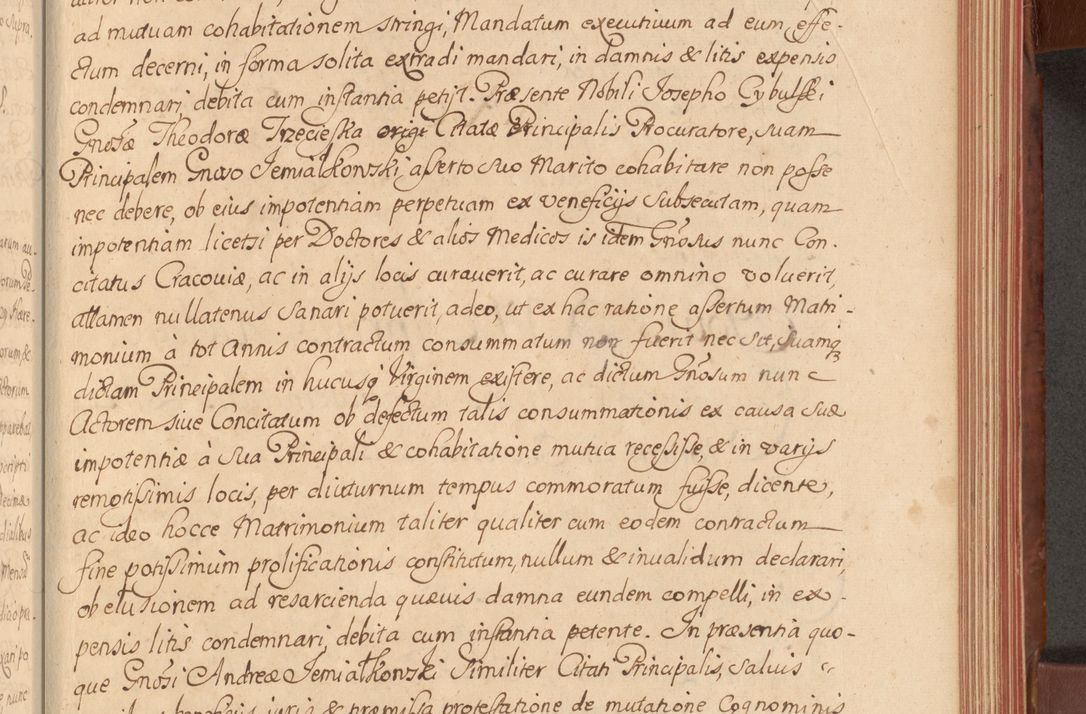 ad mutuam cohabitationem stringi, Mandatum executivum ad eum effe-
ctum decerni, in forma solita extradi mandari, in damnis & litis expensis
condemnari debita cum instantia petijt. Præsente Nobili Josepho Cybulski
Gnosæ Theodoræ Trzecieska Citatæ Principalis Procuratore, suam
Principalem Gnoso Jemiałkowski asserto suo Marito cohabitare non posse
nec debere, ob eius impotentiam perpetuam ex veneficijs subsecutam, quam
impotentiam licetsi per Doctores & alios Medicos is idem Gnosus nunc Con-
citatus Cracoviæ, ac in alijs locis curaverit, ac curare omnino voluerit,
attamen nullatenus sanari potuerit, adeo, ut ex hac ratione assertum Matri-
monium à tot Annis contractum consummatum non fuerit nec sit, suamq3
dictam Principalem in hucusq Virginem existere, ac dictum Gnosum nunc
Actorem sive Concitatum ob defectum talis consummationis ex causa suæ
impotentiæ à sua Principali & cohabitatione mutua recessisse, & in varijs
remotissimis locis, per diuturnum tempus commoratum fuisse, dicente,
ac ideo hocce Matrimonium taliter qualiter cum eodem contractum
fine potissimum prolificationis constitutum, nullum & invalidum declarari,
ob elusionem ad resarcienda quævis damna eundem compelli, in ex-
pensis litis condemnari, debita cum instantia petente. In præsentia quo-
que Gnosi Andreæ Jemiałkowski Similiter Citati Principalis, salvis
iuris & præmissa protestatione de mutatione Cognominis